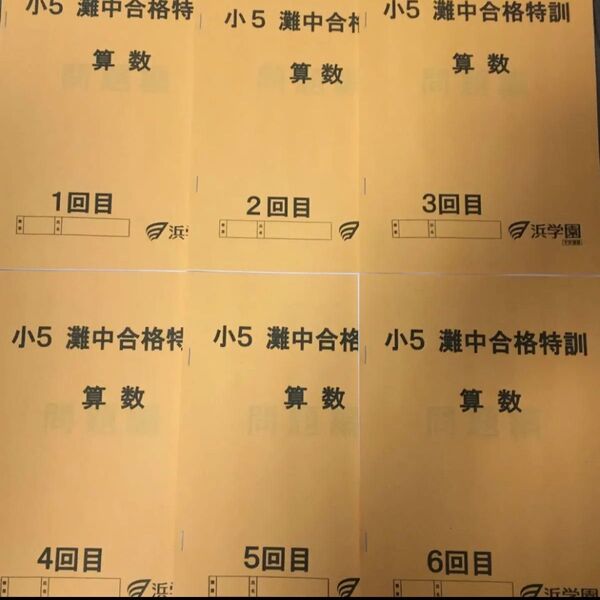 小5 灘中合格特
算数
1回目
浜
小5 灘中合格
算数
2回目
小5 灘中合格特訓
算数
3回目
浜学園
小5 灘中合格特
算数
4回目
浜
小5 灘中合格
算数
5回目
小5 灘中合格特訓
算数
6回目
浜学園